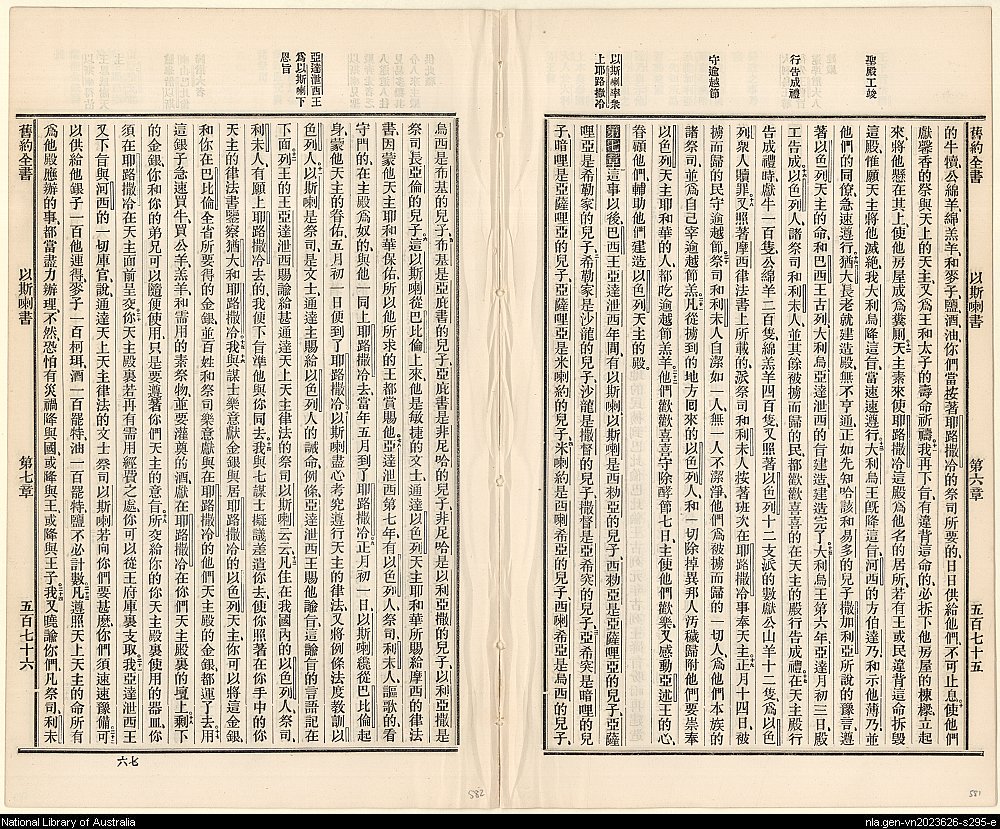 聖殿工竣
行告成禮
守逾越節
以斯喇率衆
上耶路撒冷
舊約全書 以斯喇書 第六章 五百七十五
的牛犢、公綿羊、綿羔羊、和麥子、鹽、酒、油、你們當按著耶路撒冷的祭司所要的、日日供給他們、不可止息、使他們
獻馨香的祭與天上的天主、又爲王和太子的壽命祈禱、我再下旨、有違背這命的、必拆下他房屋的棟樑、立起
來、將他懸在其上、使他房屋成爲糞廁、天主素來使耶路撒冷這殿爲他名的居所、若有王或民違背這命、拆毀
這殿、惟願天主將他滅絶、我大利烏降這旨、當速速遵行、大利烏王旣降這旨、河西的方伯達乃和示他薄乃、並
他們的同僚、急速遵行、猶大長老就建造殿、無不亨通、正如先知哈該和易多的兒子撒加利亞所說的豫言、遵
著以色列天主的命、和巴西王古列大利烏亞達泄西的旨建造、建造完了、大利烏王第六年亞達月初三日、殿
工告成、以色列人、諸祭司和利未人、並其餘被擄而歸的民、都歡歡喜喜的、在天主的殿行告成禮、在天主殿行
告成禮時、獻牛一百隻、公綿羊二百隻、綿羔羊四百隻、又照著以色列十二支派的數、獻公山羊十二隻、爲以色
列衆人贖罪、又照著摩西律法書上所載的、派祭司和利未人、按著班次在耶路撒冷事奉天主、正月十四日、被
擄而歸的民守逾越節、祭司和利未人自潔如一人、無一人不潔淨、他們爲被擄而歸的一切人、爲他們本族的
諸祭司、並爲自己宰逾越節羔、凡從擄到的地方囘來的以色列人、和一切除掉異邦人汚穢歸附他們、要崇奉
以色列天主耶和華的人、都吃逾越節羔羊、他們歡歡喜喜守除酵節七日、主使他們歡樂、又感動亞述王的心
眷顧他們、輔助他們建造以色列天主的殿。
第七章 這事以後、巴西王亞達泄西年間、有以斯喇、以斯喇是西勑亞的兒子、西勑亞是亞薩哩亞的兒子、亞薩
哩亞是希勒家的兒子、希勒家是沙龍的兒子、沙龍是撒督的兒子、撒督是亞希突的兒子、亞希突是暗哩的兒
子、暗哩是亞瑪哩亞的兒子、亞薩哩亞是米喇約的兒子、米喇約是西喇希亞的兒子、西喇希亞是烏西的兒子、
亞達泄西王
爲以斯喇下
恩旨
烏西是布基的兒子、布基是亞庇書的兒子、亞庇書是非尼哈的兒子、非尼哈是以利亞撒的兒子、以利亞撒是
祭司長亞倫的兒子、這以斯喇從巴比倫上來、他是敏捷的文士、通達以色列天主耶和華所賜給摩西的律法
書、因蒙他天主耶和華保佑、所以他所求的、王都賞賜他、亞達泄西第七年、有以色列人、祭司、利未人、謳歌的、看
守門的、在主殿爲奴的、與他一同上耶路撒冷去、當年五月到了耶路撒冷、正月初一日、以斯喇纔從巴比倫起
身、蒙他天主的眷佑、五月初一日便到了耶路撒冷、以斯喇盡心考究遵行天主的律法、又將例條法度教訓以
色列人、以斯喇是祭司、是文士、通達主賜給以色列人的誡命例條、亞達泄西王賜他諭旨、這諭旨的言語記在
下面、列王的王亞達泄西、賜諭給甚通達天上天主律法的祭司以斯喇云云、凡住在我國內的以色列人、祭司、
利未人、有願上耶路撒冷去的、我便下旨準他與你同去、我與七謀士擬議差遣你去、使你照著在你手中的你
天主的律法書、鑒察猶大和耶路撒冷、我與謀士樂意獻金銀與居耶路撒冷的以色列天主、你可以將這金銀、
和你在巴比倫全省所要得的金銀、並百姓和祭司樂意獻與在耶路撒冷的他們天主殿的金銀、都運了去、用
這銀子急速買牛、買公羊、羔羊、和需用的素祭物、並要灌奠的酒、獻在耶路撒冷在你們天主殿裏的壇上、剩下
的金銀、你和你的弟兄可以隨便使用、只是要遵著你們天主的意旨、所交給你的你天主殿裏使用的器皿、你
須在耶路撒冷在天主面前呈交、你天主殿裏若再有需用經費之處、你可以從王府庫裏支取、我亞達泄西王
又下旨與河西的一切庫官說、通達天上天主律法的文士祭司以斯喇、若向你們要甚麽、你們須速速豫備、可
以供給他銀子一百他連得、麥子一百柯珥、酒一百罷特、油一百罷特、鹽不必計數、凡遵照天上天主的命所有
爲他殿應辦的事、都當盡力辦理、不然、恐怕有災禍降與國、或降與王、或降與王子、我又曉諭你們、凡祭司、利未
舊約全書 以斯喇書 第七章 五百七十六
七六
582
581
National Library of Australia
nla.gen-vn2023626-s295-e